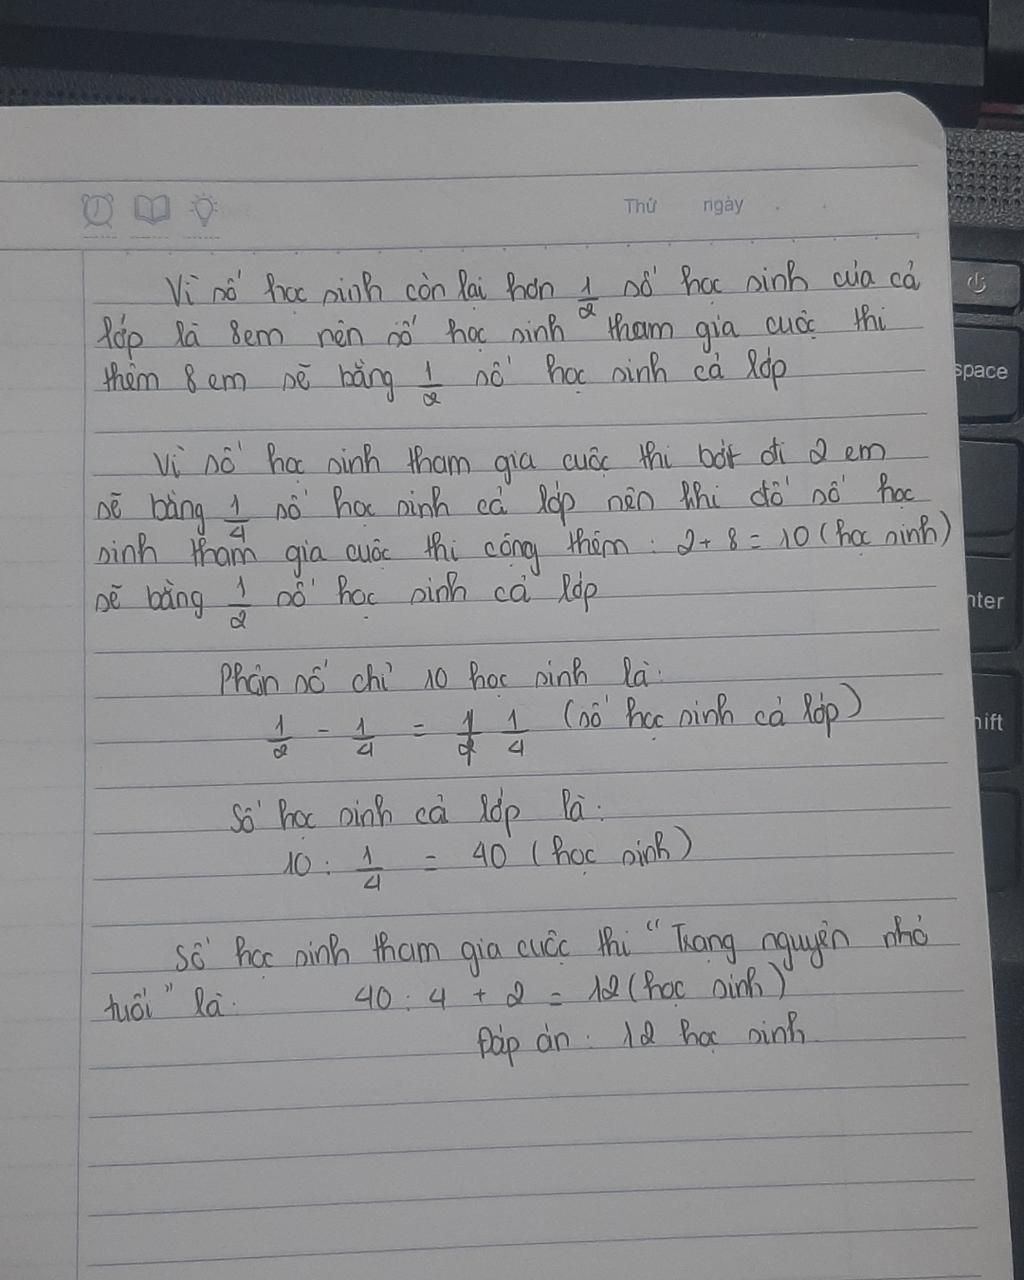 Thứ ngày
Vì số học sinh còn lại hơn 1/2 số học sinh của cả
lớp là 8em nên số học sinh tham gia cuộc thi
thêm 8 em sẽ bằng 1/2 số học sinh cả lớp
Vì số học sinh tham gia cuộc thi bớt đi 2 em
sẽ bằng 1/4 số học sinh cả lớp nên khi đó số học
sinh tham gia cuộc thi cộng thêm: 2 + 8 = 10 (học sinh)
sẽ bằng 1/2 số học sinh cả lớp
Phân số chỉ 10 học sinh là:
1/2 - 1/4 = 1/4 (số học sinh cả lớp)
Số học sinh cả lớp là:
10 : 1/4 = 40 (học sinh)
Số học sinh tham gia cuộc thi "Trạng nguyên nhỏ
tuổi" là: 40 : 4 + 2 = 12 (học sinh)
Đáp án: 12 học sinh
space
nter
hift